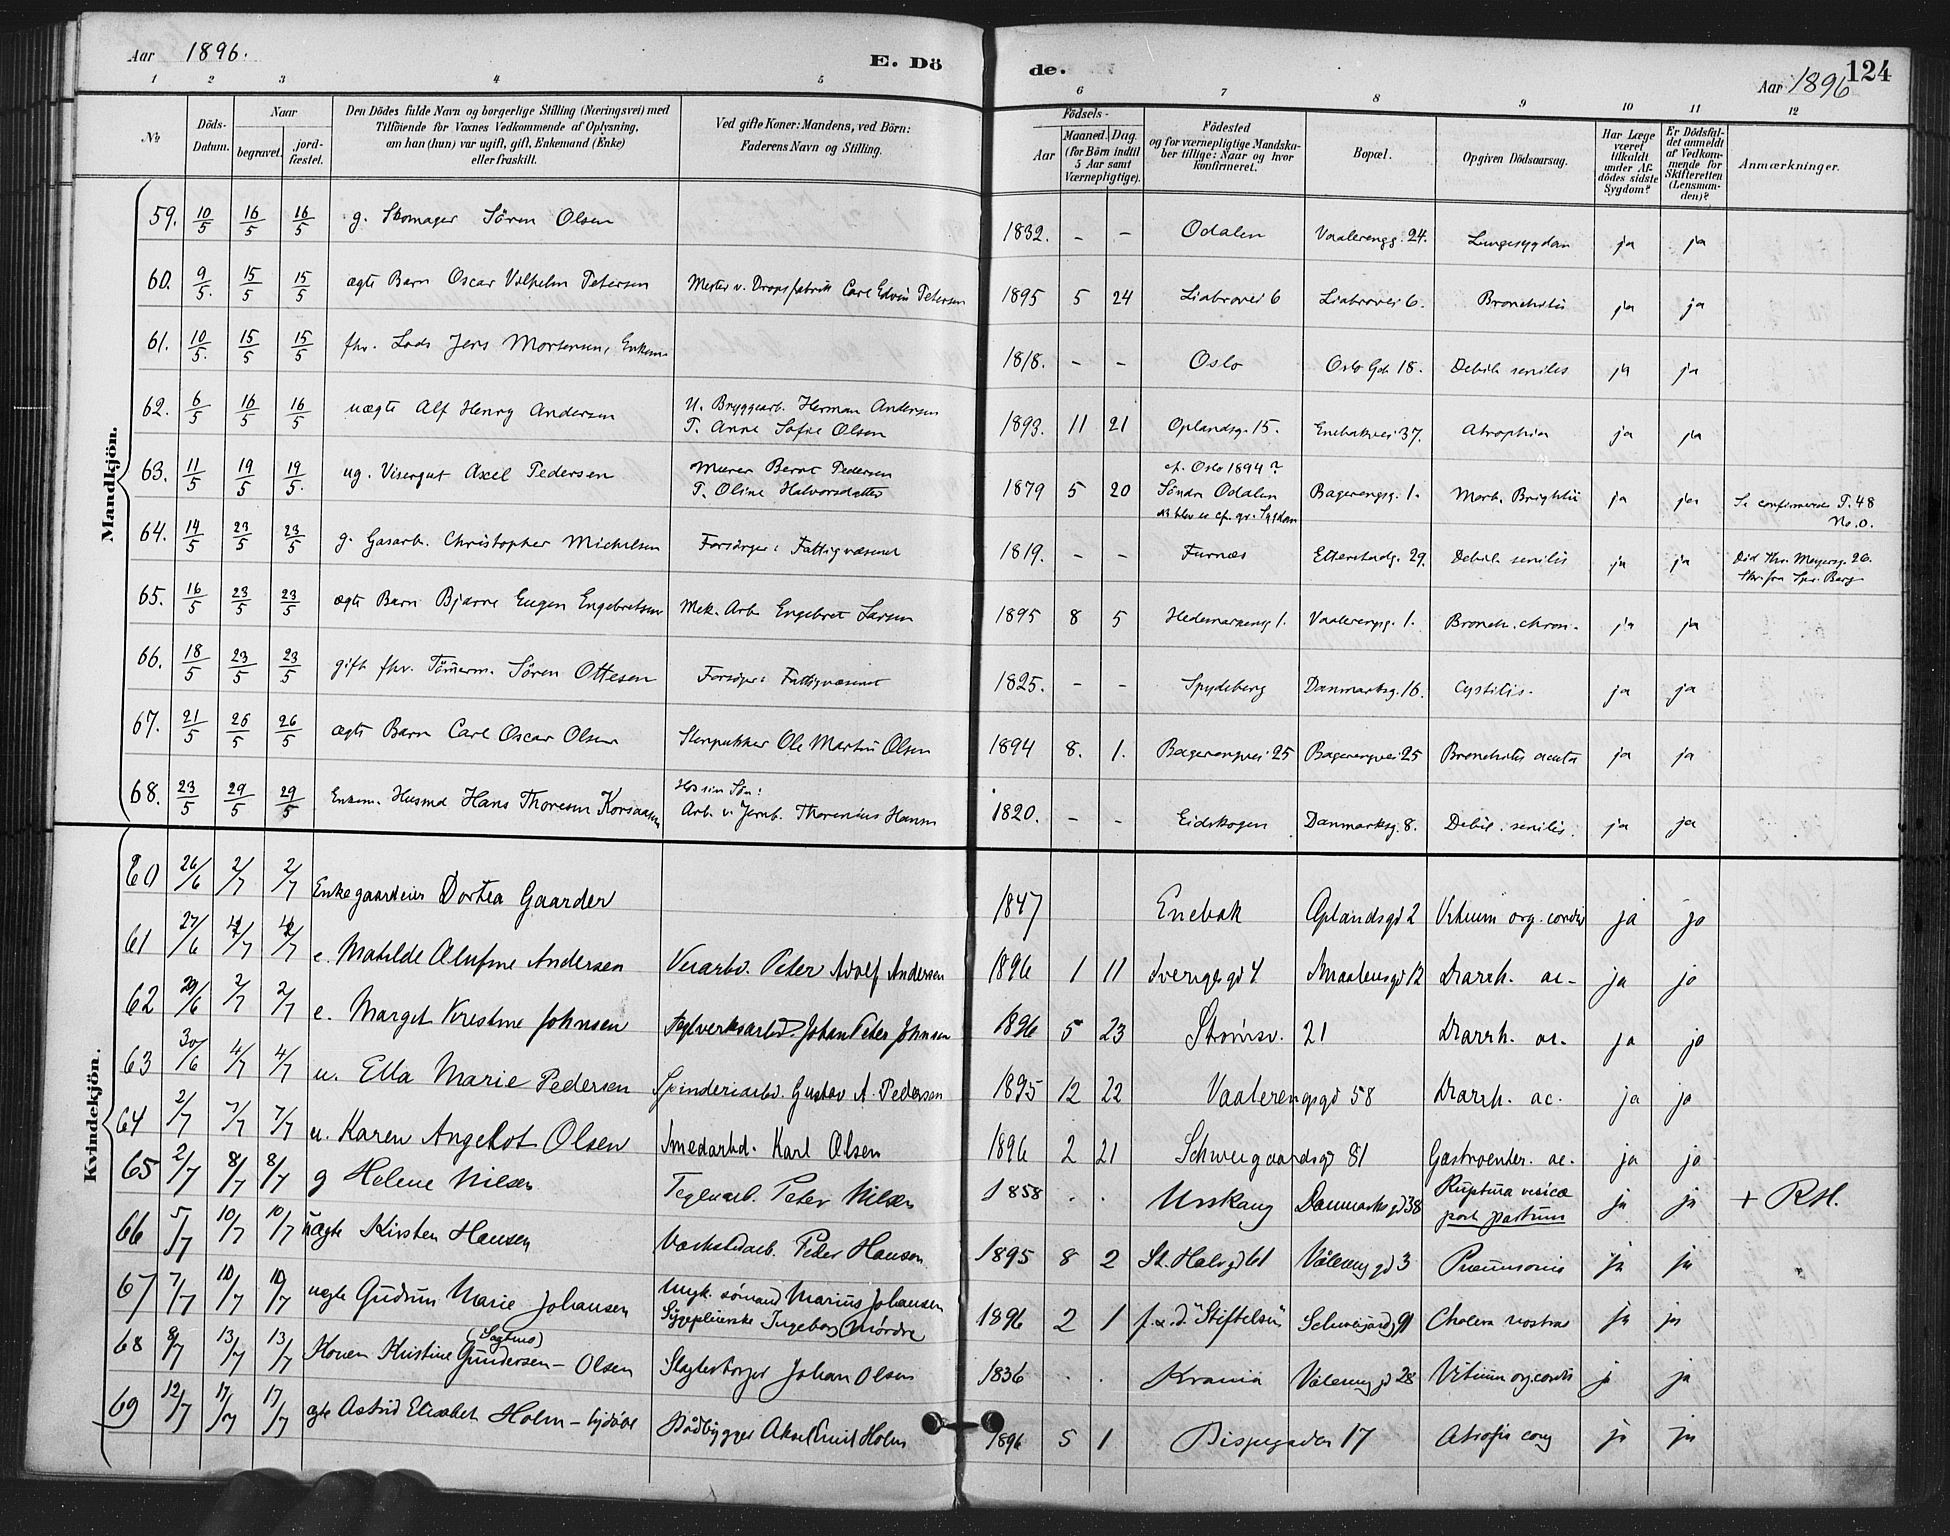 Aar 1896. E. Dö
de. Aar 1896 124
1 2 3 4 5 6 7 8 9 10 11 12
№ Döds-Datum. Naar begravet. jord-fæstet. Den Dödes fulde Navn og borgerlige Stilling (Næringsvei) med Tilföiende for Voxnes Vedkommende af Oplysning, om han (hun) var ugift, gift, Enkemand (Enke) eller fraskilt. Ved gifte Koner: Mandens, ved Börn: Faderens Navn og Stilling. Födsels- Aar Maaned. Dag. (for Börn indtil 5 Aar samt Værnepligtige). Födested og for værnepligtige Mandskaber tillige: Naar og hvor konfirmeret. Bopæl. Opgiven Dödsaarsag. Har Læge været tilkaldt under Afdödes sidste Sygdom? Er Dödsfaldet anmeldt af Vedkommende for Skifteretten (Lensmanden)? Anmærkninger.
Mandkjön.
59. 10/5 16/5 16/5 g. Skomager Sören Olsen 1832. – – Odalen Vaalerengg. 24. Lungesygdom ja ja
60. 9/5. 15/5 15/5 ægte Barn Oscar Vilhelm Petersen Mester v. Dropsfabrik Carl Edvin Petersen 1895 5 24 Liabrovei 6 Liabrovei 6. Bronchitis ja ja
61. 10/5. 15/5 15/5 fhv. Lods Jens Mortensen, Enkem. 1818. – – Oslo Oslo Gd. 18. Debil. senilis ja ja
62. 6/5 16/5 16/5 uægte Alf Henry Andersen U. Bryggearb. Herman Andersen
T. Anne Sofie Olsen 1893. 11 21 Oplandsg. 15. Enebakvei 37. Atrophia ja ja
63. 11/5 19/5 19/5. ug. Visergut Axel Pedersen Murer Bernt Pedersen
T. Oline Halvorsdatter 1879 5 20 cf. Oslo 1894?
Söndre Odalen Bagerengsg. 1. Morb. Brightii ja ja Se confirmerede P. 48
No. 0.
64. 14/5 23/5 23/5 g. Gasarb. Christopher Michelsen Forsörges: Fattigvæsenet 1819. – – Furnæs Etterstadg. 29. Debil. senilis ja ja Död Thv. Meyersg. 26.
65. 16/5 23/5 23/5 ægte Barn Bjarne Eugen Engebretsen Mek. Arb Engebret Larsen 1895 8 5 Hedemarkeng 1. Vaalerengsg. 1. Bronch. chron. ja ja
66. 18/5 23/5 23/5 gift fhv. Tömerm. Sören Ottesen Forsörges: Fattigvæsenet 1825. – – Spydeberg Danmarksg. 16. Cystitis. ja ja
67. 21/5 26/5 26/5 ægte Barn Carl Oscar Olsen Stenpukker Ole Martin Olsen 1894 8. 1. Bagerengvei 25 Bagerengvei 25 Bronchitis acuta ja ja
68. 23/5 29/5 29/5 Enkem. Husmd Hans Thoresen Korsaasen Hos sin Sön:
Arb. v. Jernb. Thorenius Hansen 1820. – – Eidskogen Danmarksg. 8. Debil. senilis. ja ja
Kvindekjön.
60 26/6 2/7 2/7 Enke gaardeier Dortea Gaarder 1847 Enebak Oplandsgd 2 Vitium org. cordis ja jo
61 27/6 4/7 4/7 e. Matilde Olufine Andersen Verarb. Peter Adolf Andersen 1896 1 11 Sverigesgd 4 Maalensgd 12 Diarrh. ac- ja jo
62 29/6 2/7 2/7 e. Margit Kristine Johnsen Teglverksarbd. Johan Peter Johnsen 1896 5 23 Strømsv. 21 Diarrh. ac. ja jo
63 30/6 4/7 4/7 u. Ella Marie Pedersen Spinderiarbd. Gustav A. Pedersen 1895 12 22 Vaalerengsgd 58 Diarrh. ac. ja jo
64 2/7 7/7 7/7 u. Karen Angelot Olsen Smedarbd. Karl Olsen 1896 2 21 Schweigaardsgd 81 Gastroenter. ac. ja jo
65 2/7 8/7 8/7 g Helene Nilsen Teglverarb. Peter Nilsen 1858 . . Urskaug Danmarksgd 38 Ruptura vesicæ
post partum ja ja + RM.
66 5/7 10/7 10/7 uægte Kirsten Hansen Værkstedarb. Peder Hansen 1895 8 2 St. Halvgd 61 Vålereng gd 3 Pneumonie ja ja
67 7/7 10/7 10/7 uegte Gudrun Marie Johansen Ungk. sømand Marius Johansen
Sygepleierske Ingeborg Mørdre 1896 2 1 f. x. d. "Stiftelsen" Schweigardsg 91 Cholera nostras ja ja
68 8/7 13/7 13/7 Konen Kristine Gundersen – Olsen Slagtesborger Johan Olsen 1836 . . Krania Våleneng gd 28 Vitium org. cordis ja ja
69 12/7 17/7 17/7 egte Astrid Elisabet Holm – Baadbygger Aksel Emil Holm 1896 5 1 Bispegaden 17 Atrofia cong ja ja